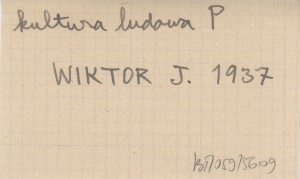 kultura ludowa P
WIKTOR J. 1937